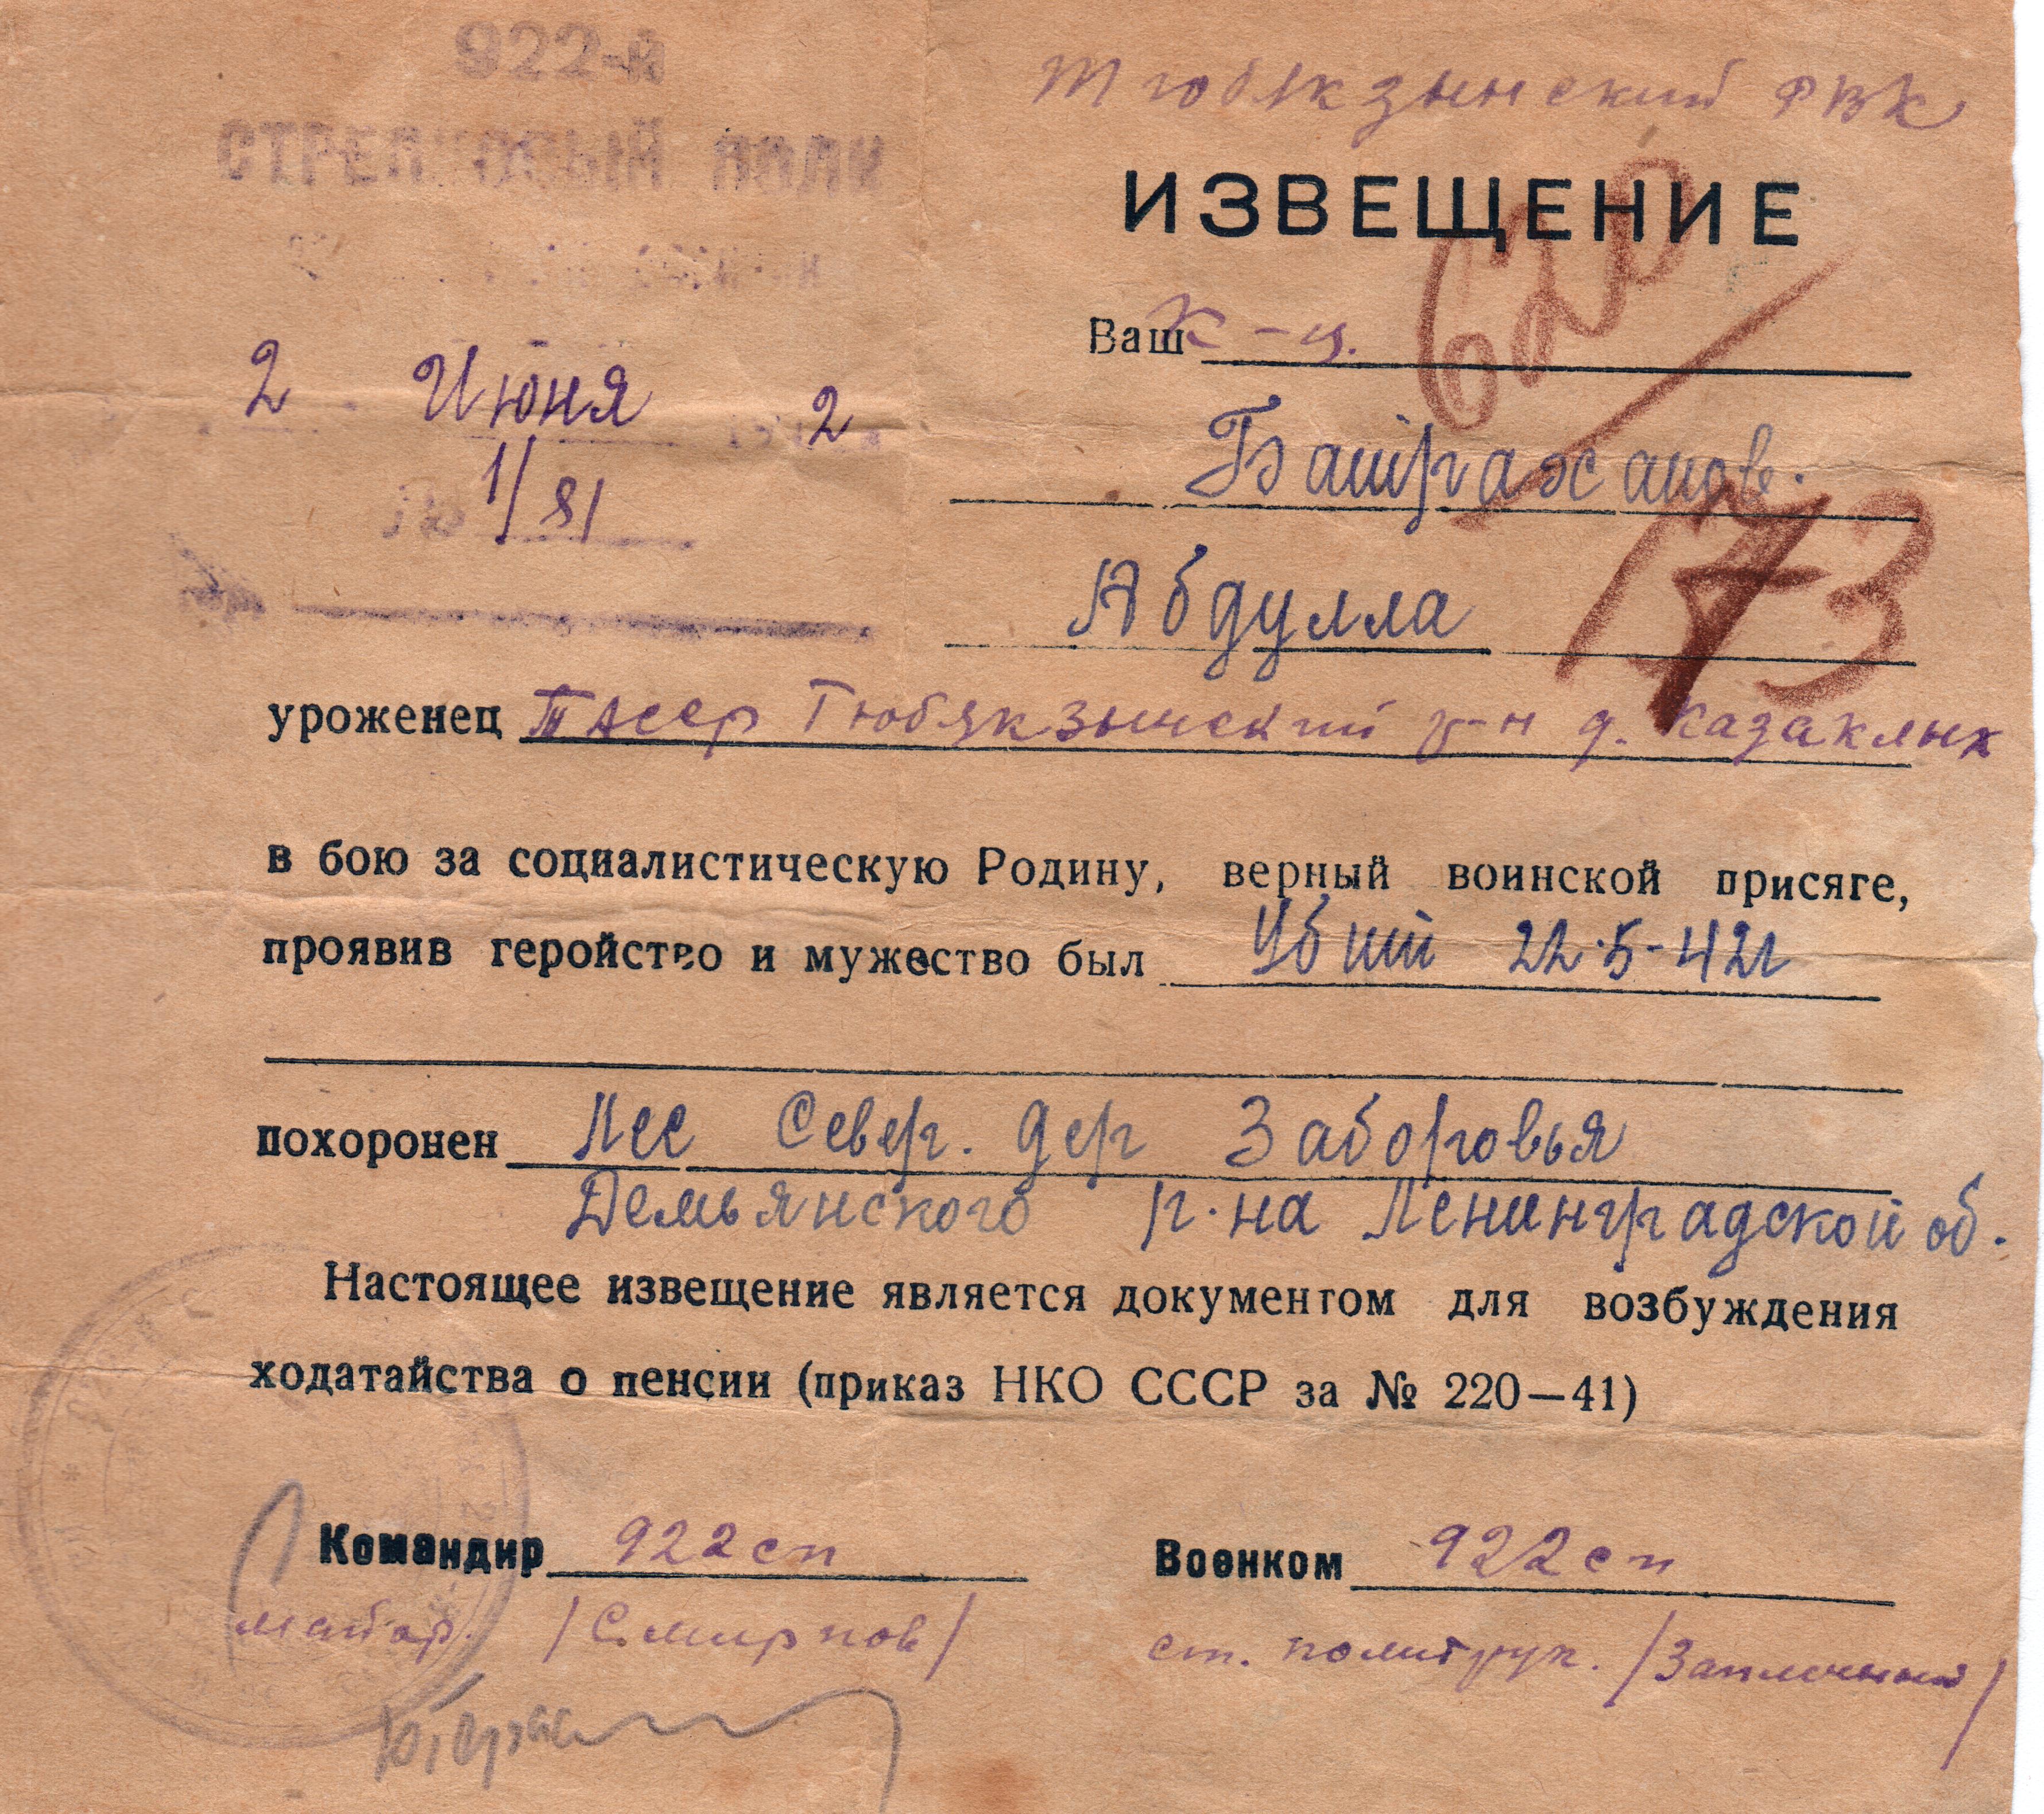 922-й
СТРЕЛКОВЫЙ ПОЛК
2 Июня 2
№ 1/81
Тюбякзынский РВК
ИЗВЕЩЕНИЕ
Ваш к-ц.
Баширажанов.
Абдулла
173
уроженец ТАССР Тюбякзынский р-н д. Казаклык
в бою за социалистическую Родину, верный воинской присяге,
проявив геройство и мужество был Убит 22·5-42г
похоронен Лес Север. дер Заборовья
Демьянского р-на Ленинградской об.
Настоящее извещение является документом для возбуждения
ходатайства о пенсии (приказ НКО СССР за № 220—41)
Командир 922 сп Военком 922 сп
майор. /Смирнов/ ст. политрук.